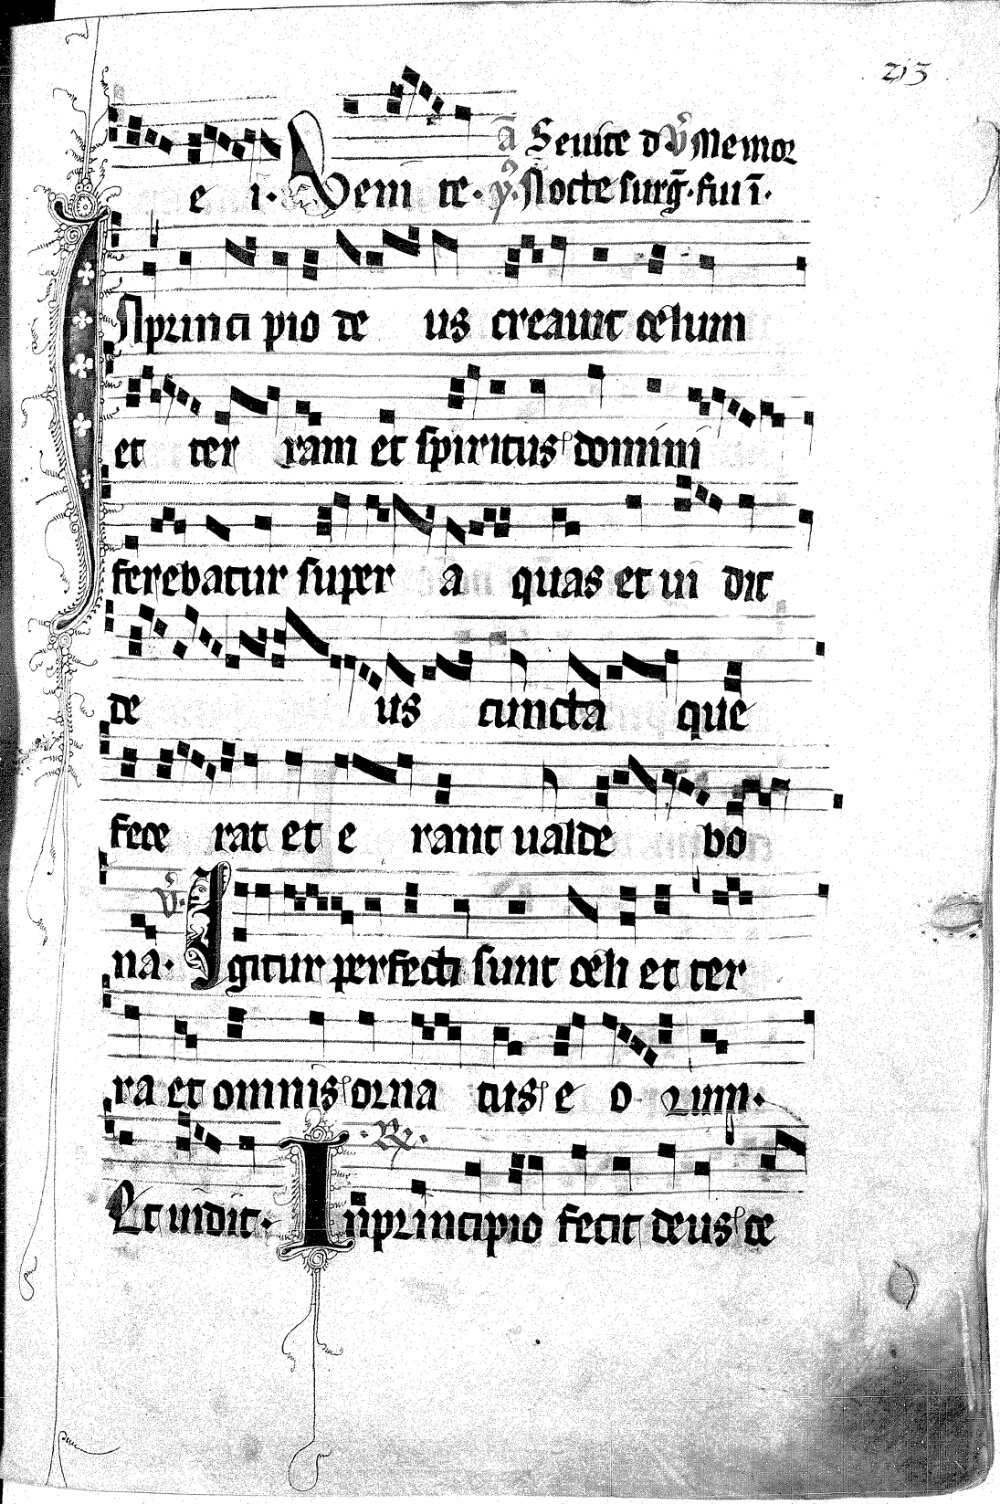 213
ā Seruite d v̄ Memor
e i. Veni te. ẏ. Nocte surḡ. fiu ī.
In prin ci pio de us creauit celum
et ter ram et spiritus domini
ferebatur super a quas et ui dit
de us cuncta que
fece rat et e rant ualde bo
v̄.
na. Igitur perfecti sunt celi et ter
ra et omnis orna tus e o rum.
.R.
Et uidit. In principio fecit deus ce